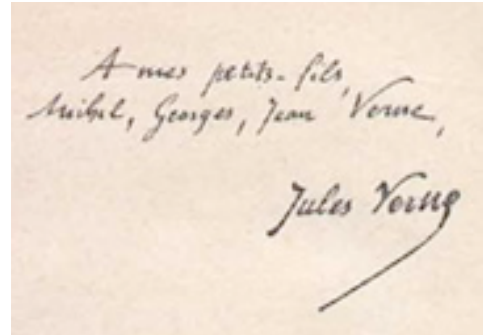 A mes petits-fils,
Michel, Georges, Jean Verne,
Jules Verne